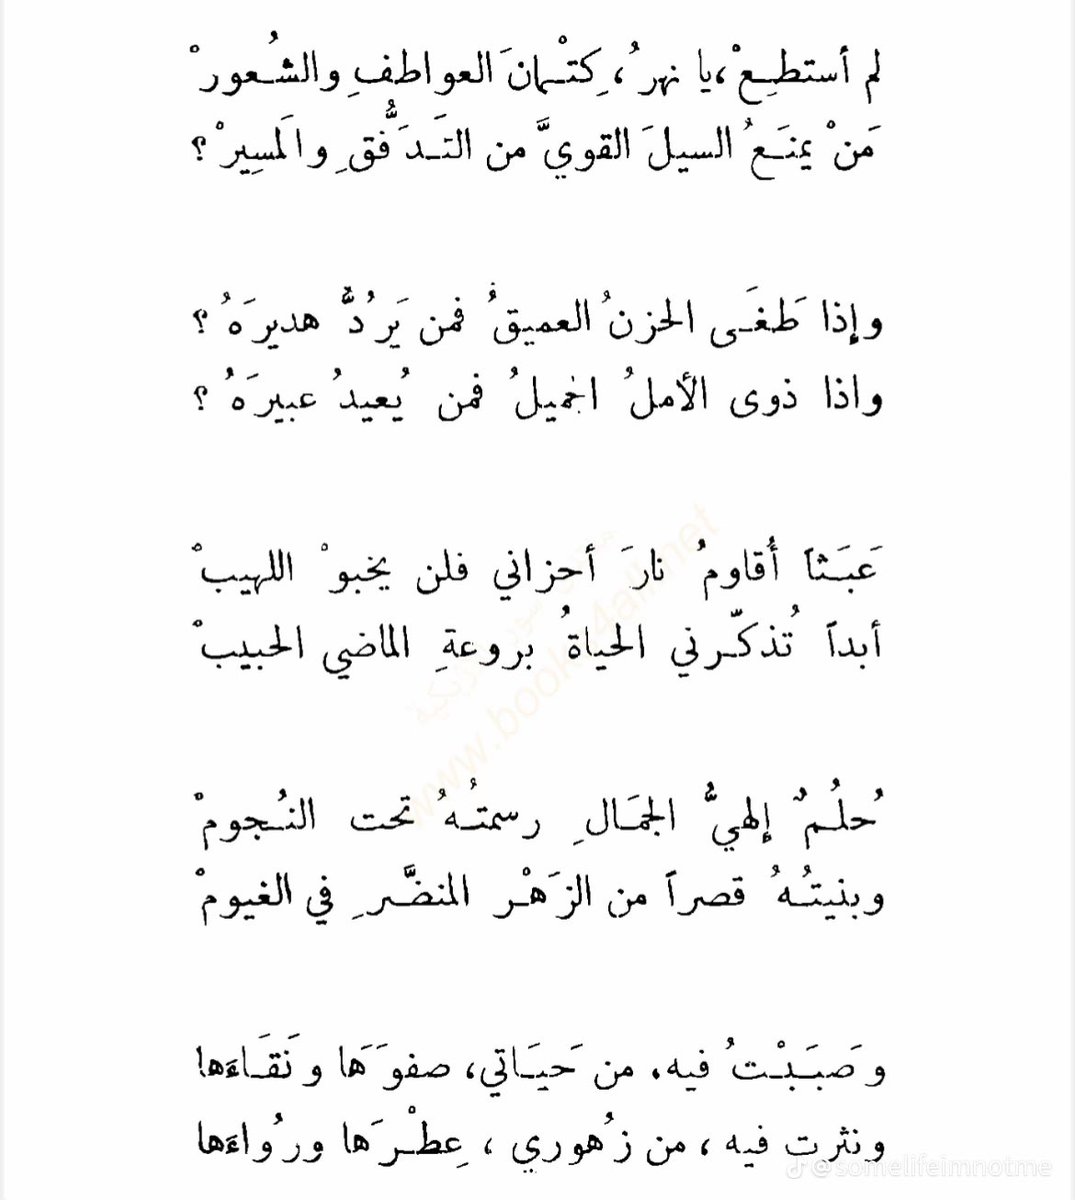 لم أستطِعْ، يا نهرُ، كِتْمانَ العواطفِ والشُعورْ
مَنْ يمنَعُ السيلَ القويَّ من التَدَفُّقِ والمَسِيرْ؟
وإذا طَغَى الحزنُ العميقُ فمن يَرُدُّ هديرَهُ؟
واذا ذوى الأملُ الجميلُ فمن يُعيدُ عبيرَهُ؟
عَبَثاً أُقاومُ نارَ أحزاني فلن يخبوْ اللهيبْ
أبداً تُذكّرني الحياةُ بروعةِ الماضي الحبيبْ
حُلُمٌ إلهيُّ الجمَالِ رسمتُهُ تحت النُجومْ
وبنيتُهُ قصراً من الزَهْر المنضَّرِ في الغيومْ
وصَبَبْتُ فيه، من حَيَاتي، صفوَهَا ونَقَاءَها
ونثرت فيه، من زُهوري، عِطْرَها ورُواءَها
www.books4all.net
@somelifeimnotme